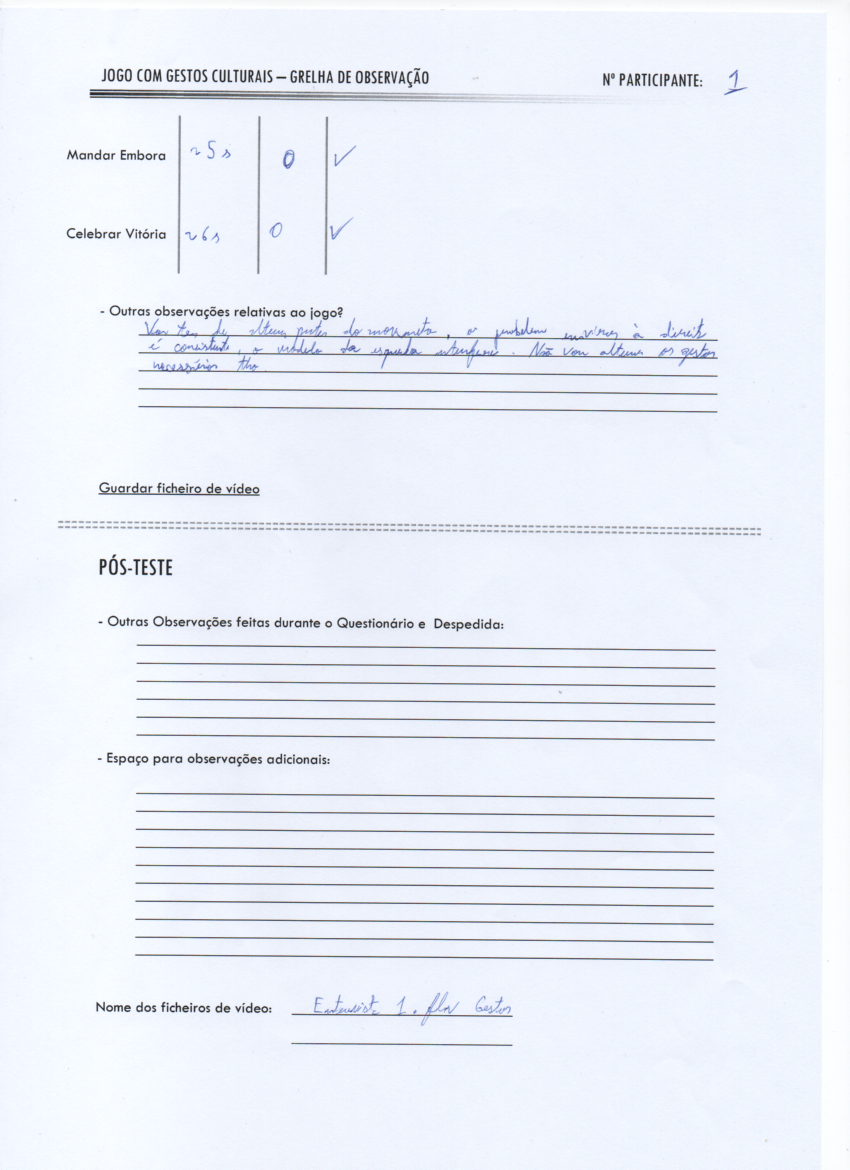 JOGO COM GESTOS CULTURAIS – GRELHA DE OBSERVAÇÃO
Nº PARTICIPANTE: 1
Mandar Embora ~5s 0 ✓
Celebrar Vitória ~6s 0 ✓
- Outras observações relativas ao jogo?
Vou ter de alterar partes do , o à direita
é consistente, o modelo da esquerda . Não vou alterar os gestos
necessários
Guardar ficheiro de vídeo
PÓS-TESTE
- Outras Observações feitas durante o Questionário e Despedida:
- Espaço para observações adicionais:
Nome dos ficheiros de vídeo: 1. flv Gestos